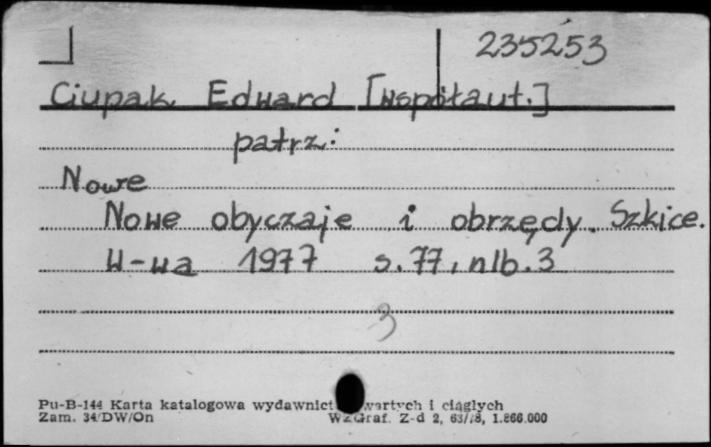 235253
Ciupak Edward [współaut.]
patrz:
Nowe
Nowe obyczaje i obrzędy. Szkice.
W-wa 1977 s. 77, nlb. 3
3
Pu-B-144 Karta katalogowa wydawnict wartych i ciągłych
Zam. 34/DW/On WZGraf. Z-d 2, 63/78, 1.866.000